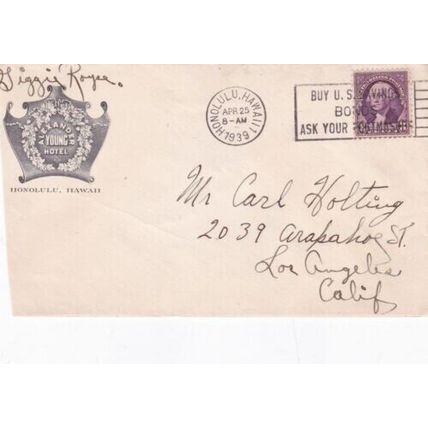 Siggie Royce.
ALEXANDER
YOUNG
HOTEL
HONOLULU, HAWAII
HONOLULU, HAWAII
APR 25
8-AM
1939
BUY U.S. SAVINGS
BONDS
ASK YOUR POSTMASTER
Mr Carl Holting
2039 Arapahoe St.
Los Angeles
Calif